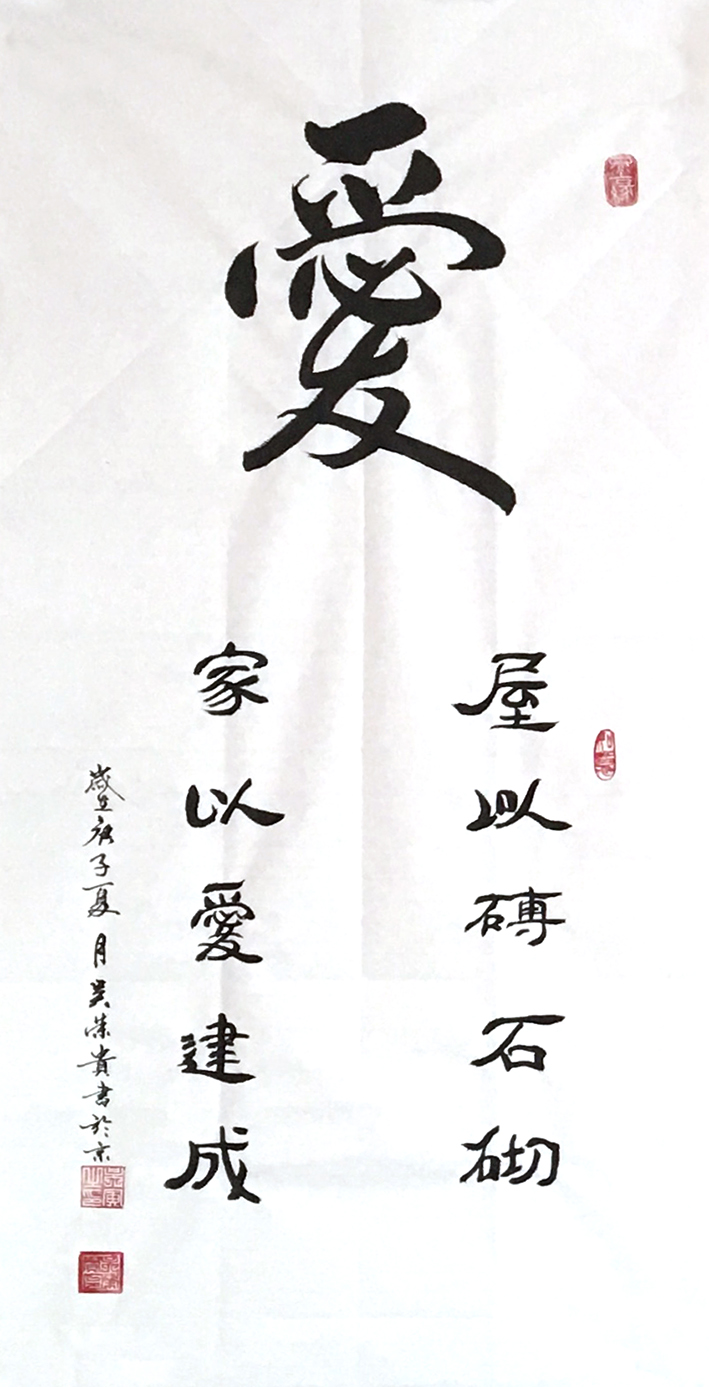 愛
屋以磚石砌
家以愛建成
歲在庚子夏月吴榮貴書於京